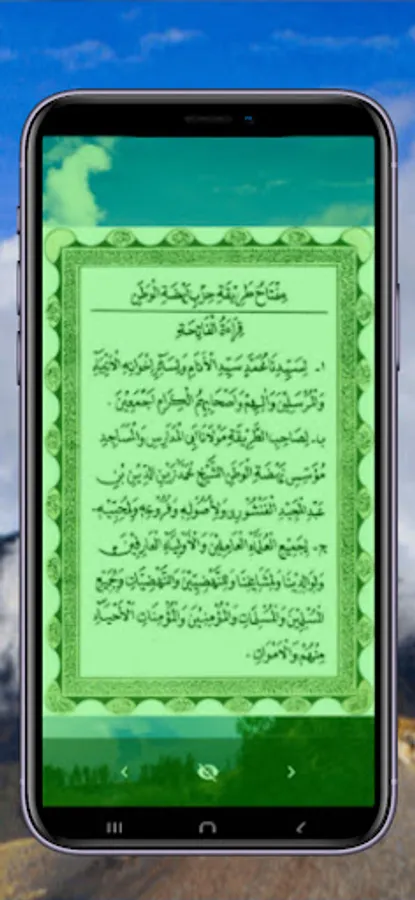 مِفْتَاحُ طَرِيْقَةِ حِزْبِ نَهْضَةِ الْوَطَنِ
قِرَاءَةُ الْفَاتِحَةِ
١. لِسَيِّدِنَا مُحَمَّدٍ سَيِّدِ الْأَنَامِ وَلِسَائِرِ إِخْوَانِهِ الْأَنْبِيَاءِ
وَالْمُرْسَلِيْنَ وَآلِهِمْ وَأَصْحَابِهِمُ الْكِرَامِ أَجْمَعِيْنَ .
ب. لِصَاحِبِ الطَّرِيْقَةِ مَوْلَانَا أَبِي الْمَدَارِسِ وَالْمَسَاجِدِ
مُؤَسِّسِ نَهْضَةِ الْوَطَنِ الشَّيْخِ مُحَمَّدْ زَيْنِ الدِّيْنِ بْنِ
عَبْدِ الْمَجِيْدِ الْفَنْشُوْرِي وَلِأُصُوْلِهِ وَفُرُوْعِهِ وَلِمُحِبِّيْهِ
ج. لِجَمِيْعِ الْعُلَمَاءِ الْعَامِلِيْنَ وَالْأَوْلِيَاءِ الْعَارِفِيْنَ
وَلِوَالِدِيْنَا وَلِمَشَايِخِنَا وَلِلنَّهْضِيِّيْنَ وَالنَّهْضِيَّاتِ وَلِجَمِيْعِ
الْمُسْلِمِيْنَ وَالْمُسْلِمَاتِ وَالْمُؤْمِنِيْنَ وَالْمُؤْمِنَاتِ الْأَحْيَاءِ
مِنْهُمْ وَالْأَمْوَاتِ .